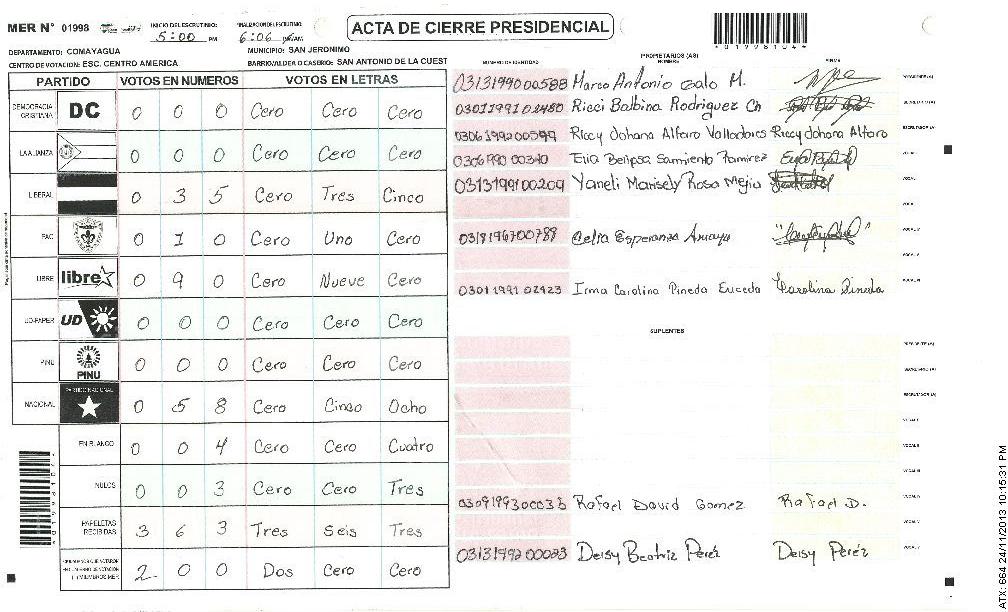 MER N° 01998 INICIO DEL ESCRUTINIO: 5:00 PM FINALIZACION ESCRUTINIO: 6:06 PM/AM ACTA DE CIERRE PRESIDENCIAL
DEPARTAMENTO: COMAYAGUA MUNICIPIO: SAN JERONIMO
CENTRO DE VOTACION: ESC. CENTRO AMERICA BARRIO/ALDEA O CASERIO: SAN ANTONIO DE LA CUEST
PARTIDO VOTOS EN NUMEROS VOTOS EN LETRAS
DEMOCRACIA CRISTIANA DC 0 0 0 Cero Cero Cero
LA ALIANZA 0 0 0 Cero Cero Cero
LIBERAL 0 3 5 Cero Tres Cinco
PAC 0 1 0 Cero Uno Cero
LIBRE libre 0 9 0 Cero Nueve Cero
UD-FAPER UD 0 0 0 Cero Cero Cero
PINU PINU 0 0 0 Cero Cero Cero
NACIONAL PARTIDO NACIONAL 0 5 8 Cero Cinco Ocho
EN BLANCO 0 0 4 Cero Cero Cuatro
NULOS 0 0 3 Cero Cero Tres
PAPELETAS RECIBIDAS 3 6 3 Tres Seis Tres
2 0 0 Dos Cero Cero
*01998104*
PROPIETARIOS (AS)
NUMERO DE IDENTIDAD NOMBRE FIRMA
Marco Antonio M. PRESIDENTE(A)
0301199102480 Ricci Balbina Rodriguez Ch SECRETARIO(A)
0306199200599 Riccy Johana Alfaro Valladares Riccy Johana Alfaro ESCRUTADOR(A)
Sarmiento Ramirez VOCAL I
0313199100209 Yaneli Marisely Rosa Mejia VOCAL II
VOCAL III
0318196700788 Celia Esperanza Amaya VOCAL IV
VOCAL V
0301199102923 Irma Carolina Pineda Euceda Carolina Pineda VOCAL VI
SUPLENTES
PRESIDENTE(A)
SECRETARIO(A)
ESCRUTADOR(A)
VOCAL I
VOCAL II
VOCAL III
Rafael David Gomez Rafael D. VOCAL IV
VOCAL V
0313199200023 Deisy Beatriz Peréz Deisy Peréz
ATX: 664 24/11/2013 10:15:31 PM